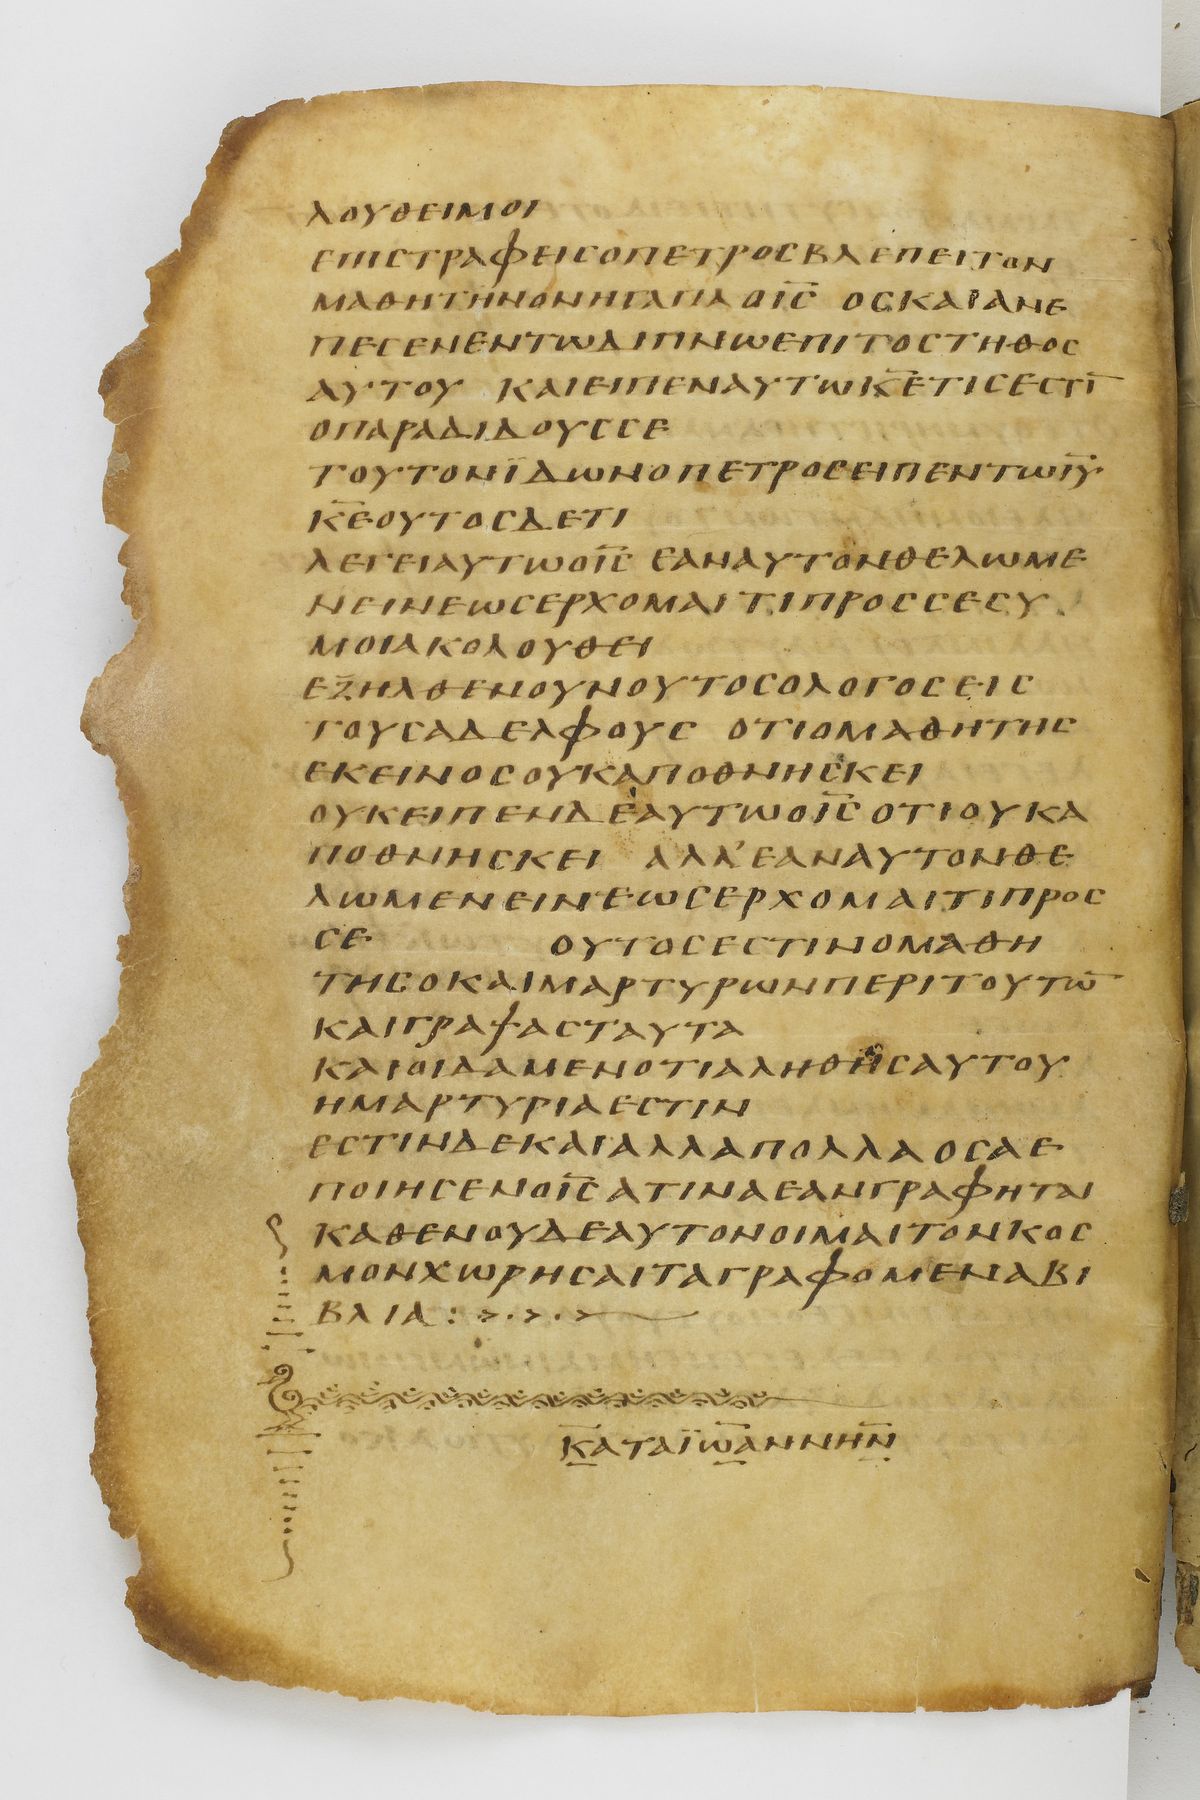 ΛΟΥΘΕΙΜΟΙ
ΕΠΙΣΤΡΑΦΕΙΣΟΠΕΤΡΟΣΒΛΕΠΕΙΤΟΝ
ΜΑΘΗΤΗΝΟΝΗΓΑΠΑΟΙ̅Σ̅ ΟΣΚΑΙΑΝΕ
ΠΕΣΕΝΕΝΤΩΔΙΠΝΩΕΠΙΤΟΣΤΗΘΟΣ
ΑΥΤΟΥ ΚΑΙΕΙΠΕΝΑΥΤΩΚ̅Ε̅ΤΙΣΕΣΤΙ̅
ΟΠΑΡΑΔΙΔΟΥΣΣΕ
ΤΟΥΤΟΝΪΔΩΝΟΠΕΤΡΟΣΕΙΠΕΝΤΩΙ̅Υ̅·
Κ̅Ε̅ΟΥΤΟΣΔΕΤΙ
ΛΕΓΕΙΑΥΤΩΟΙ̅Σ̅ ΕΑΝΑΥΤΟΝΘΕΛΩΜΕ
ΝΕΙΝΕΩΣΕΡΧΟΜΑΙΤΙΠΡΟΣΣΕΣΥ
ΜΟΙΑΚΟΛΟΥΘΕΙ
ΕΞΗΛΘΕΝΟΥΝΟΥΤΟΣΟΛΟΓΟΣΕΙΣ
ΤΟΥΣΑΔΕΛΦΟΥΣ ΟΤΙΟΜΑΘΗΤΗΣ
ΕΚΕΙΝΟΣΟΥΚΑΠΟΘΝΗΣΚΕΙ
ΟΥΚΕΙΠΕΝΔΕΑΥΤΩΟΙ̅Σ̅ΟΤΙΟΥΚΑ
ΠΟΘΝΗΣΚΕΙ ΑΛΛ’ΕΑΝΑΥΤΟΝΘΕ
ΛΩΜΕΝΕΙΝΕΩΣΕΡΧΟΜΑΙΤΙΠΡΟΣ
ΣΕ ΟΥΤΟΣΕΣΤΙΝΟΜΑΘΗ
ΤΗΣΟΚΑΙΜΑΡΤΥΡΩΝΠΕΡΙΤΟΥΤΩ̅
ΚΑΙΓΡΑΨΑΣΤΑΥΤΑ
ΚΑΙΟΙΔΑΜΕΝΟΤΙΑΛΗΘΗΣΑΥΤΟΥ
ΗΜΑΡΤΥΡΙΑΕΣΤΙΝ
ΕΣΤΙΝΔΕΚΑΙΑΛΛΑΠΟΛΛΑΟΣΑΕ
ΠΟΙΗΣΕΝΟΙ̅Σ̅ΑΤΙΝΑΕΑΝΓΡΑΦΗΤΑΙ
ΚΑΘΕΝΟΥΔΕΑΥΤΟΝΟΙΜΑΙΤΟΝΚΟΣ
ΜΟΝΧΩΡΗΣΑΙΤΑΓΡΑΦΟΜΕΝΑΒΙ
ΒΛΙΑ:>·>·>
ΚΑΤΑΪΩΑΝΝΗΝ